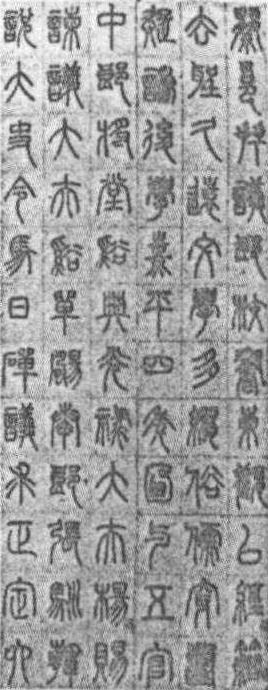 蔡邕拜議郎校書東觀以經籍
去聖久遠文學多謬俗儒穿鑿
疑誤後學熹平四年圖与五官
中郎將堂谿典光祿大夫楊賜
諫議大夫單颺郎張馴韓
說大史令馬日磾議求正定六